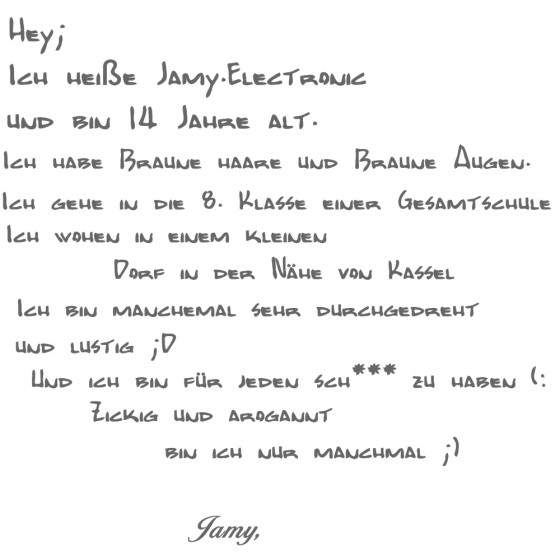 Hey;
Ich heiße Jamy.Electronic
und bin 14 Jahre alt.
Ich habe Braune haare und Braune Augen.
Ich gehe in die 8. Klasse einer Gesamtschule
Ich wohen in einem kleinen
Dorf in der Nähe von Kassel
Ich bin manchemal sehr durchgedreht
und lustig ;D
Und ich bin für jeden sch*** zu haben (:
Zickig und arogannt
bin ich nur manchmal ;)
Jamy,